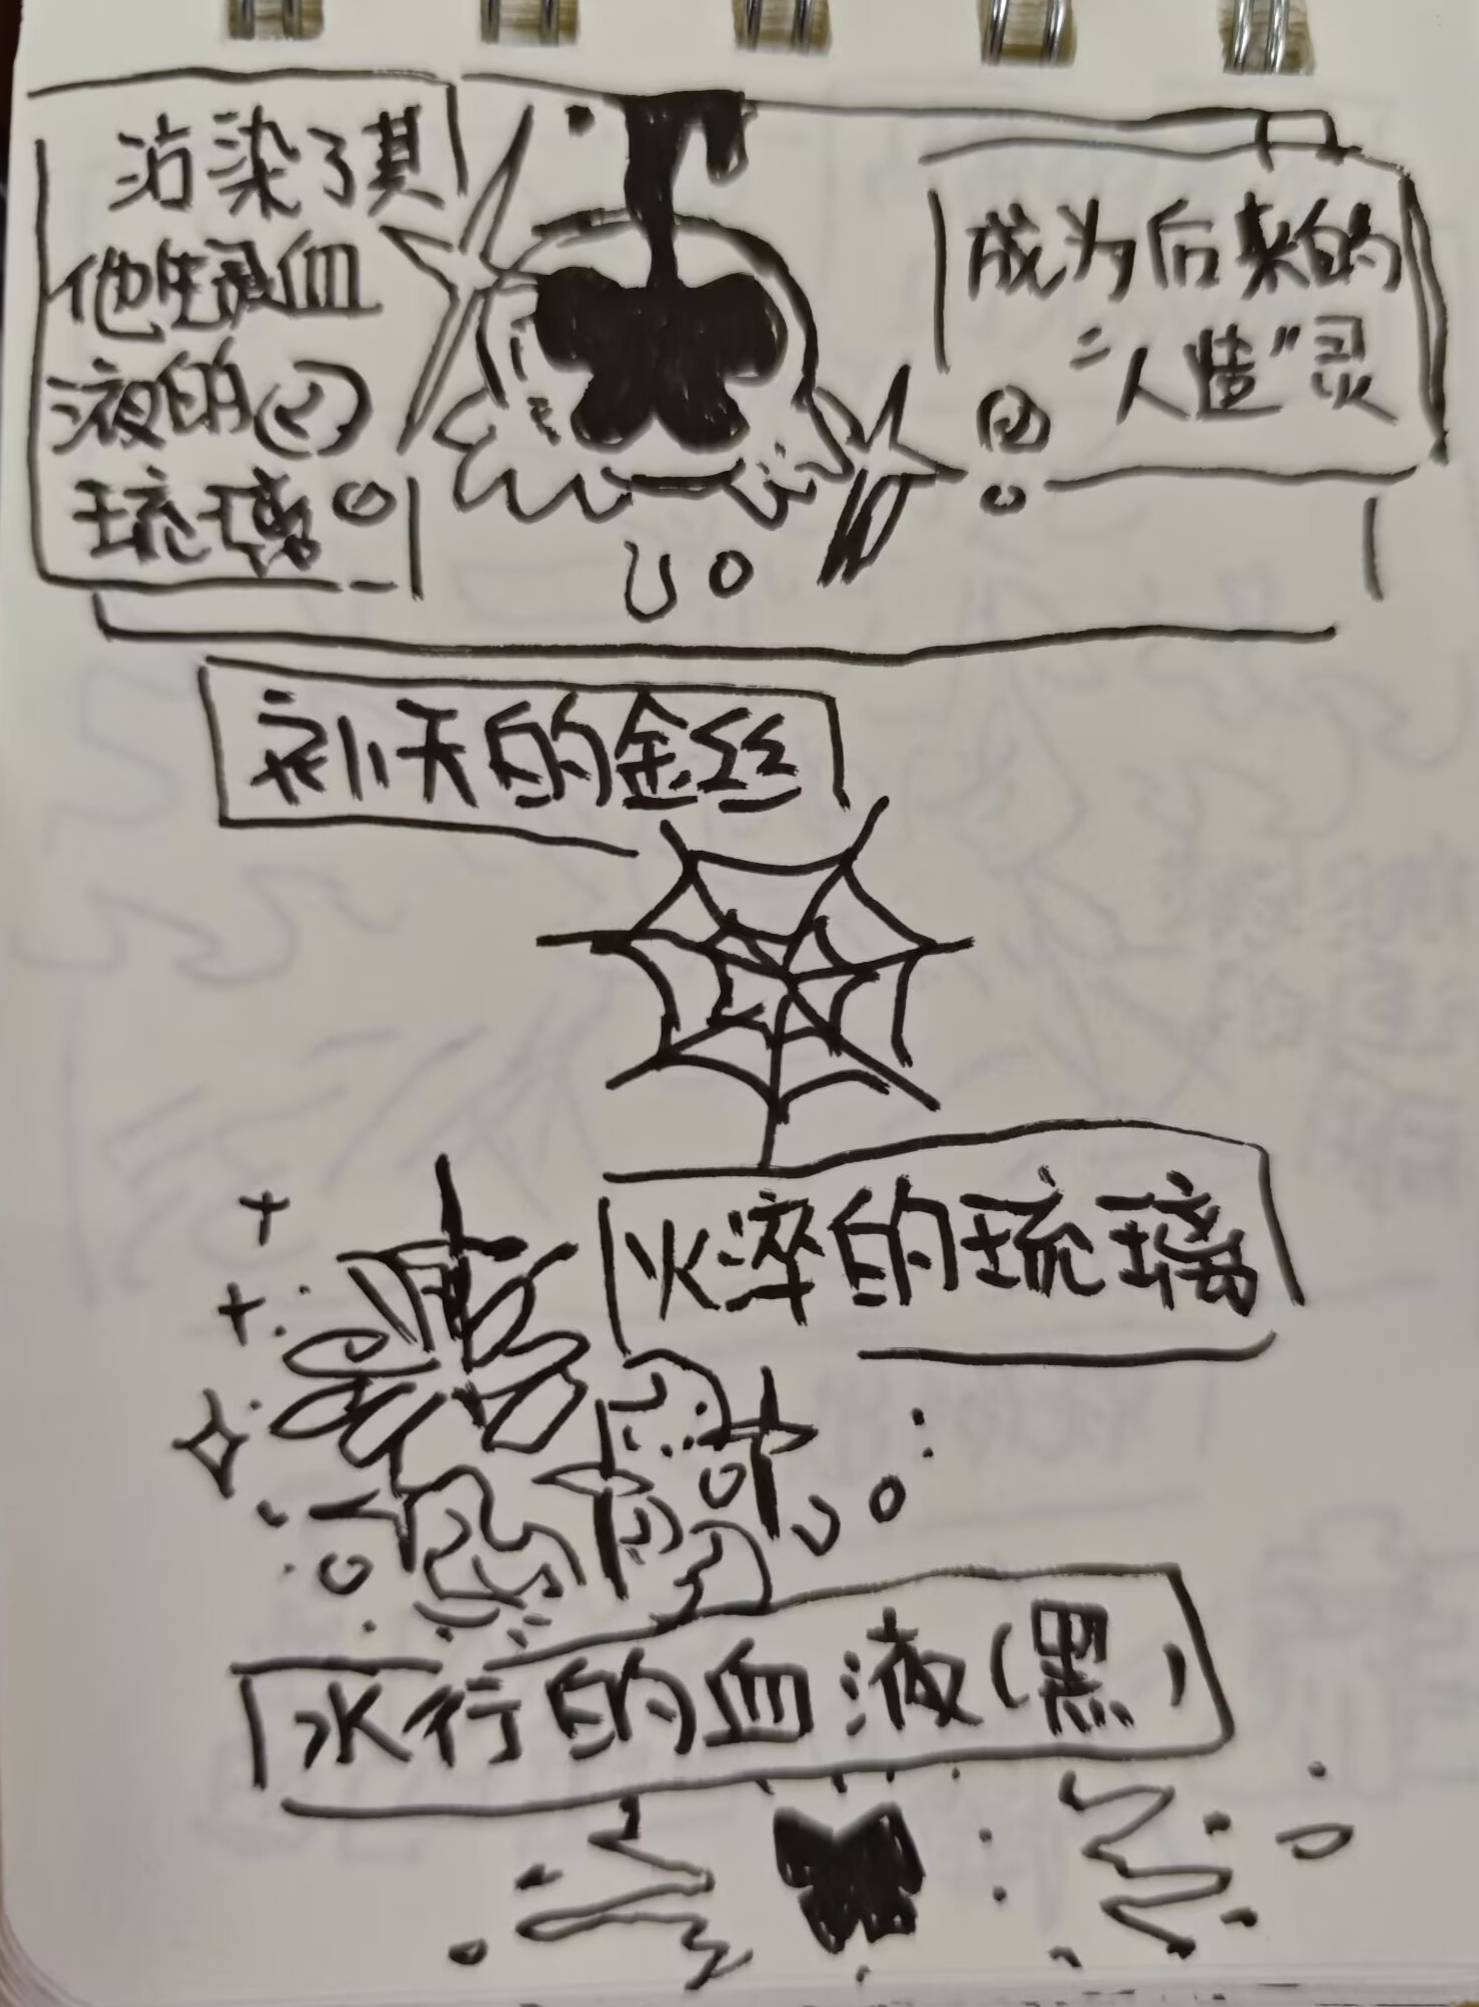 沾染了其
他生灵血
液的
琉璃
成为后来的
“人造”灵
补天的金丝
火淬的琉璃
水行的血液(黑)